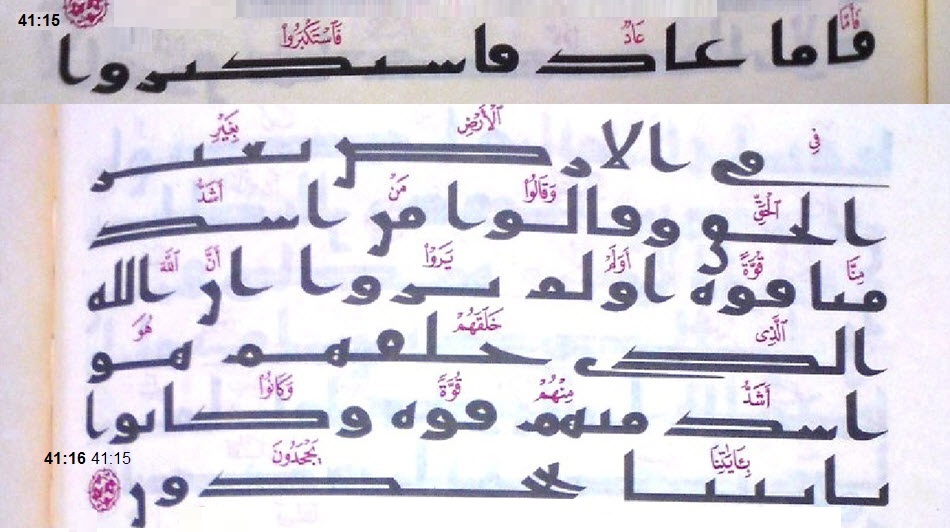 41:15
فَأَمَّا عَادٌ فَٱسْتَكْبَرُوا۟
فاما عاد فاستكبروا
فِى ٱلْأَرْضِ بِغَيْرِ
في الارض بغير
ٱلْحَقِّ وَقَالُوا۟ مَنْ أَشَدُّ
الحق وقالوا من اشد
مِنَّا قُوَّةً أَوَلَمْ يَرَوْا۟ أَنَّ ٱللَّهَ
منا قوه اولم يروا ان الله
ٱلَّذِى خَلَقَهُمْ هُوَ
الذي خلقهم هو
أَشَدُّ مِنْهُمْ قُوَّةً وَكَانُوا۟
اشد منهم قوه وكانوا
بِـَٔايَٰتِنَا يَجْحَدُونَ
باييتنا يجحدون
41:16 41:15